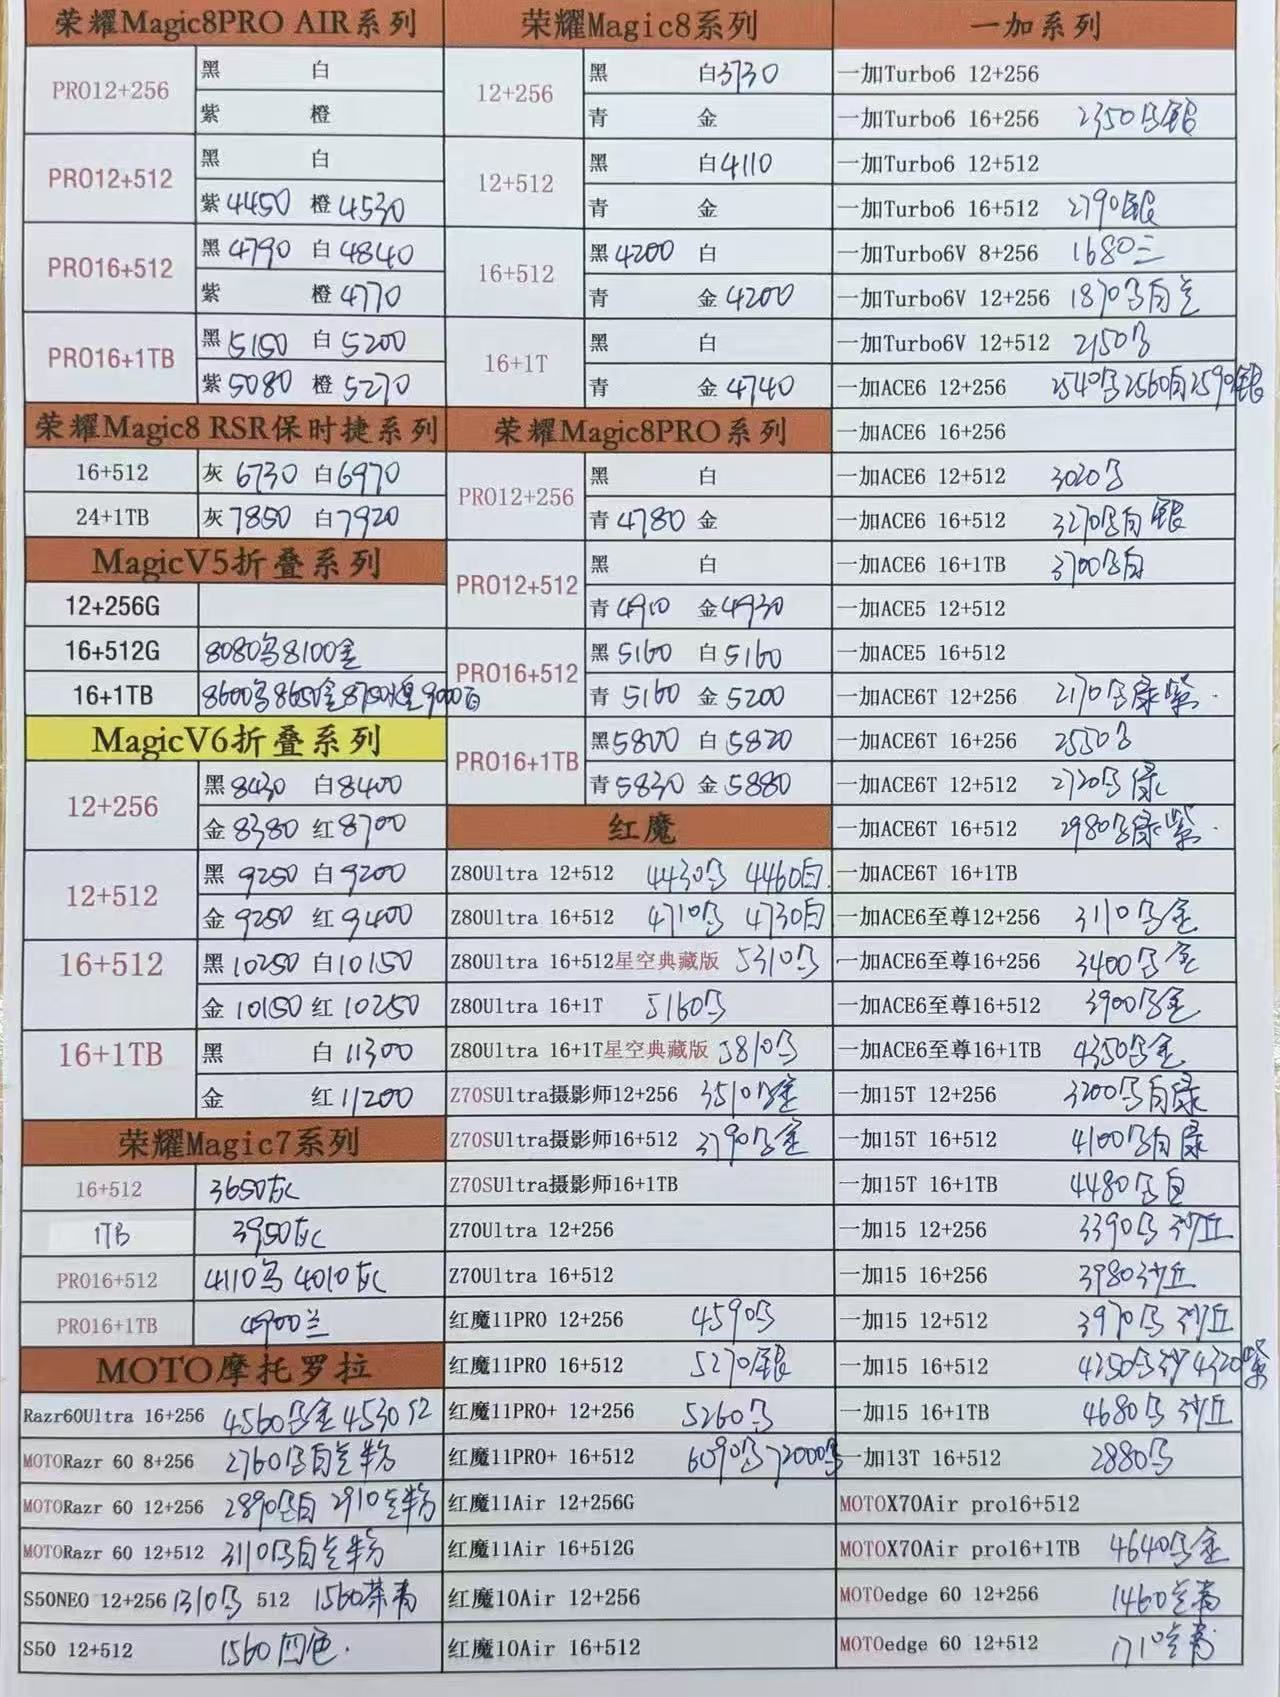 荣耀Magic8PRO AIR系列
PRO12+256
黑 白
紫 橙
PRO12+512
黑 白
紫4450 橙4530
PRO16+512
黑4790 白4840
紫 橙4770
PRO16+1TB
黑5150 白5200
紫5080 橙5270
荣耀Magic8 RSR保时捷系列
16+512 灰6730 白6970
24+1TB 灰7850 白7920
MagicV5折叠系列
12+256G
16+512G 8080乌8100金
16+1TB 8600乌8650金8750煌9000白
MagicV6折叠系列
12+256
黑8430 白8400
金8380 红8700
12+512
黑9250 白9200
金9250 红9400
16+512
黑10250 白10150
金10150 红10250
16+1TB
黑 白11300
金 红11200
荣耀Magic7系列
16+512 3650灰
1TB 3950灰
PRO16+512 4110乌 4010灰
PRO16+1TB 4900兰
MOTO摩托罗拉
Razr60Ultra 16+256 4560乌金 4530红
MOTORazr 60 8+256 2760乌白兰粉
MOTORazr 60 12+256 2890乌白 2910兰粉
MOTORazr 60 12+512 3110乌白兰粉
S50NEO 12+256 1310乌 512 1560茶青
S50 12+512 1560四色.
荣耀Magic8系列
12+256
黑 白3730
青 金
12+512
黑 白4110
青 金
16+512
黑4200 白
青 金4200
16+1T
黑 白
青 金4740
荣耀Magic8PRO系列
PRO12+256
黑 白
青4780 金
PRO12+512
黑 白
青4910 金4930
PRO16+512
黑5160 白5160
青5160 金5200
PRO16+1TB
黑5800 白5820
青5830 金5880
红魔
Z80Ultra 12+512 4430乌 4460白
Z80Ultra 16+512 4710乌 4730白
Z80Ultra 16+512星空典藏版 5310乌
Z80Ultra 16+1T 5160乌
Z80Ultra 16+1T星空典藏版 5810乌
Z70SUltra摄影师12+256 3510乌金
Z70SUltra摄影师16+512 3790乌金
Z70SUltra摄影师16+1TB
Z70Ultra 12+256
Z70Ultra 16+512
红魔11PRO 12+256 4590乌
红魔11PRO 16+512 5270银
红魔11PRO+ 12+256 5260乌
红魔11PRO+ 16+512 6090乌
红魔11Air 12+256G
红魔11Air 16+512G
红魔10Air 12+256
红魔10Air 16+512
一加系列
一加Turbo6 12+256
一加Turbo6 16+256 2350乌银
一加Turbo6 12+512
一加Turbo6 16+512 2790银
一加Turbo6V 8+256 1680三
一加Turbo6V 12+256 1870乌白兰
一加Turbo6V 12+512 2150乌
一加ACE6 12+256 2540乌2560白2590银
一加ACE6 16+256
一加ACE6 12+512 3020乌
一加ACE6 16+512 3270乌白银
一加ACE6 16+1TB 3700乌白
一加ACE5 12+512
一加ACE5 16+512
一加ACE6T 12+256 2170乌绿紫.
一加ACE6T 16+256 2550乌
一加ACE6T 12+512 2720乌绿
一加ACE6T 16+512 2980乌绿紫.
一加ACE6T 16+1TB
一加ACE6至尊12+256 3110乌金
一加ACE6至尊16+256 3400乌金
一加ACE6至尊16+512 3900乌金
一加ACE6至尊16+1TB 4350乌金
一加15T 12+256 3200乌白绿
一加15T 16+512 4100乌白绿
一加15T 16+1TB 4480乌白
一加15 12+256 3390乌 沙丘
一加15 16+256 3980沙丘
一加15 12+512 3970乌 沙丘
一加15 16+512 4250乌沙4320紫
一加15 16+1TB 4680乌 沙丘
一加13T 16+512 2880乌
MOTOX70Air pro16+512
MOTOX70Air pro16+1TB 4640乌金
MOTOedge 60 12+256 1460兰青
MOTOedge 60 12+512 1710兰青